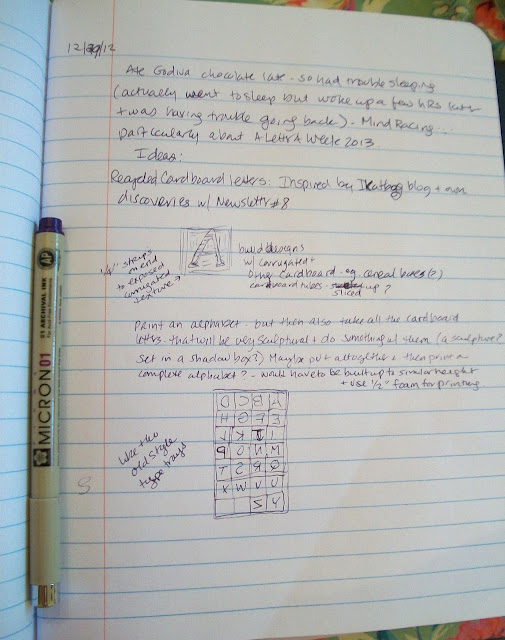 12/29/12
Ate Godiva chocolate late - so had trouble sleeping
(actually went to sleep but woke up a few hRs later
+ was having trouble going back) - Mind Racing...
particularly about A Letter A Week 2013.
Ideas:
Recycled Cardboard letters: Inspired by blog + own
discoveries w/ Newslettr #8
A
1/4" strips
mend
to exposed
corrugated
texture →
build designs
w/ corrugated +
Other cardboard - eg. cereal boxes (?)
cardboard tubes - sliced up?
Print an alphabet - but then also take all the cardboard
letters - that will be very sculptural + do something w/ them (a sculpture?
set in a shadow box?) Maybe put altogether + then print a
complete alphabet? - would have to be built up to similar height
+ use 1/2" foam for printing
like the
old style
type trays
D C B A
H G F E
L K J I
P O N M
T S R Q
X W V U
Z Y
AP
01 ARCHIVAL INK
MICRON 01